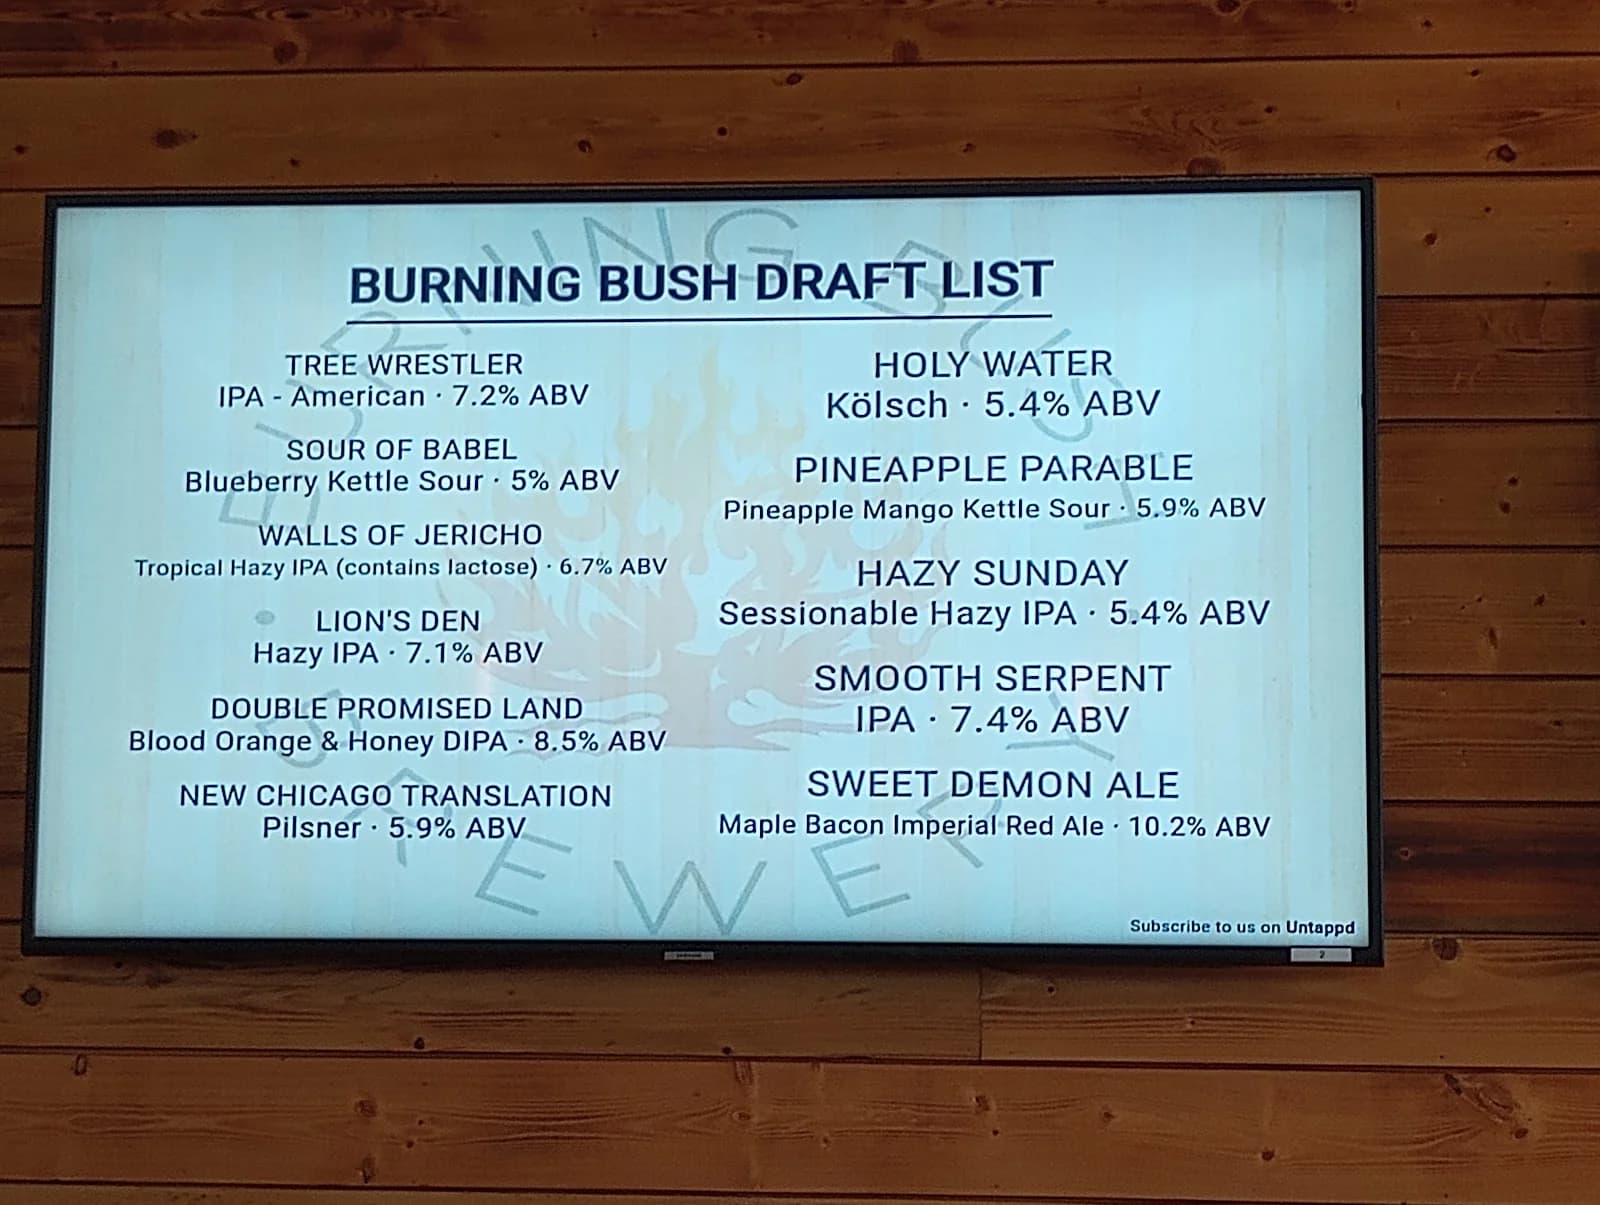 BURNING BUSH DRAFT LIST
TREE WRESTLER
IPA - American · 7.2% ABV
SOUR OF BABEL
Blueberry Kettle Sour · 5% ABV
WALLS OF JERICHO
Tropical Hazy IPA (contains lactose) · 6.7% ABV
LION'S DEN
Hazy IPA · 7.1% ABV
DOUBLE PROMISED LAND
Blood Orange & Honey DIPA · 8.5% ABV
NEW CHICAGO TRANSLATION
Pilsner · 5.9% ABV
HOLY WATER
Kölsch · 5.4% ABV
PINEAPPLE PARABLE
Pineapple Mango Kettle Sour · 5.9% ABV
HAZY SUNDAY
Sessionable Hazy IPA · 5.4% ABV
SMOOTH SERPENT
IPA · 7.4% ABV
SWEET DEMON ALE
Maple Bacon Imperial Red Ale · 10.2% ABV
Subscribe to us on Untappd
BURNING BUSH
BREWERY
2